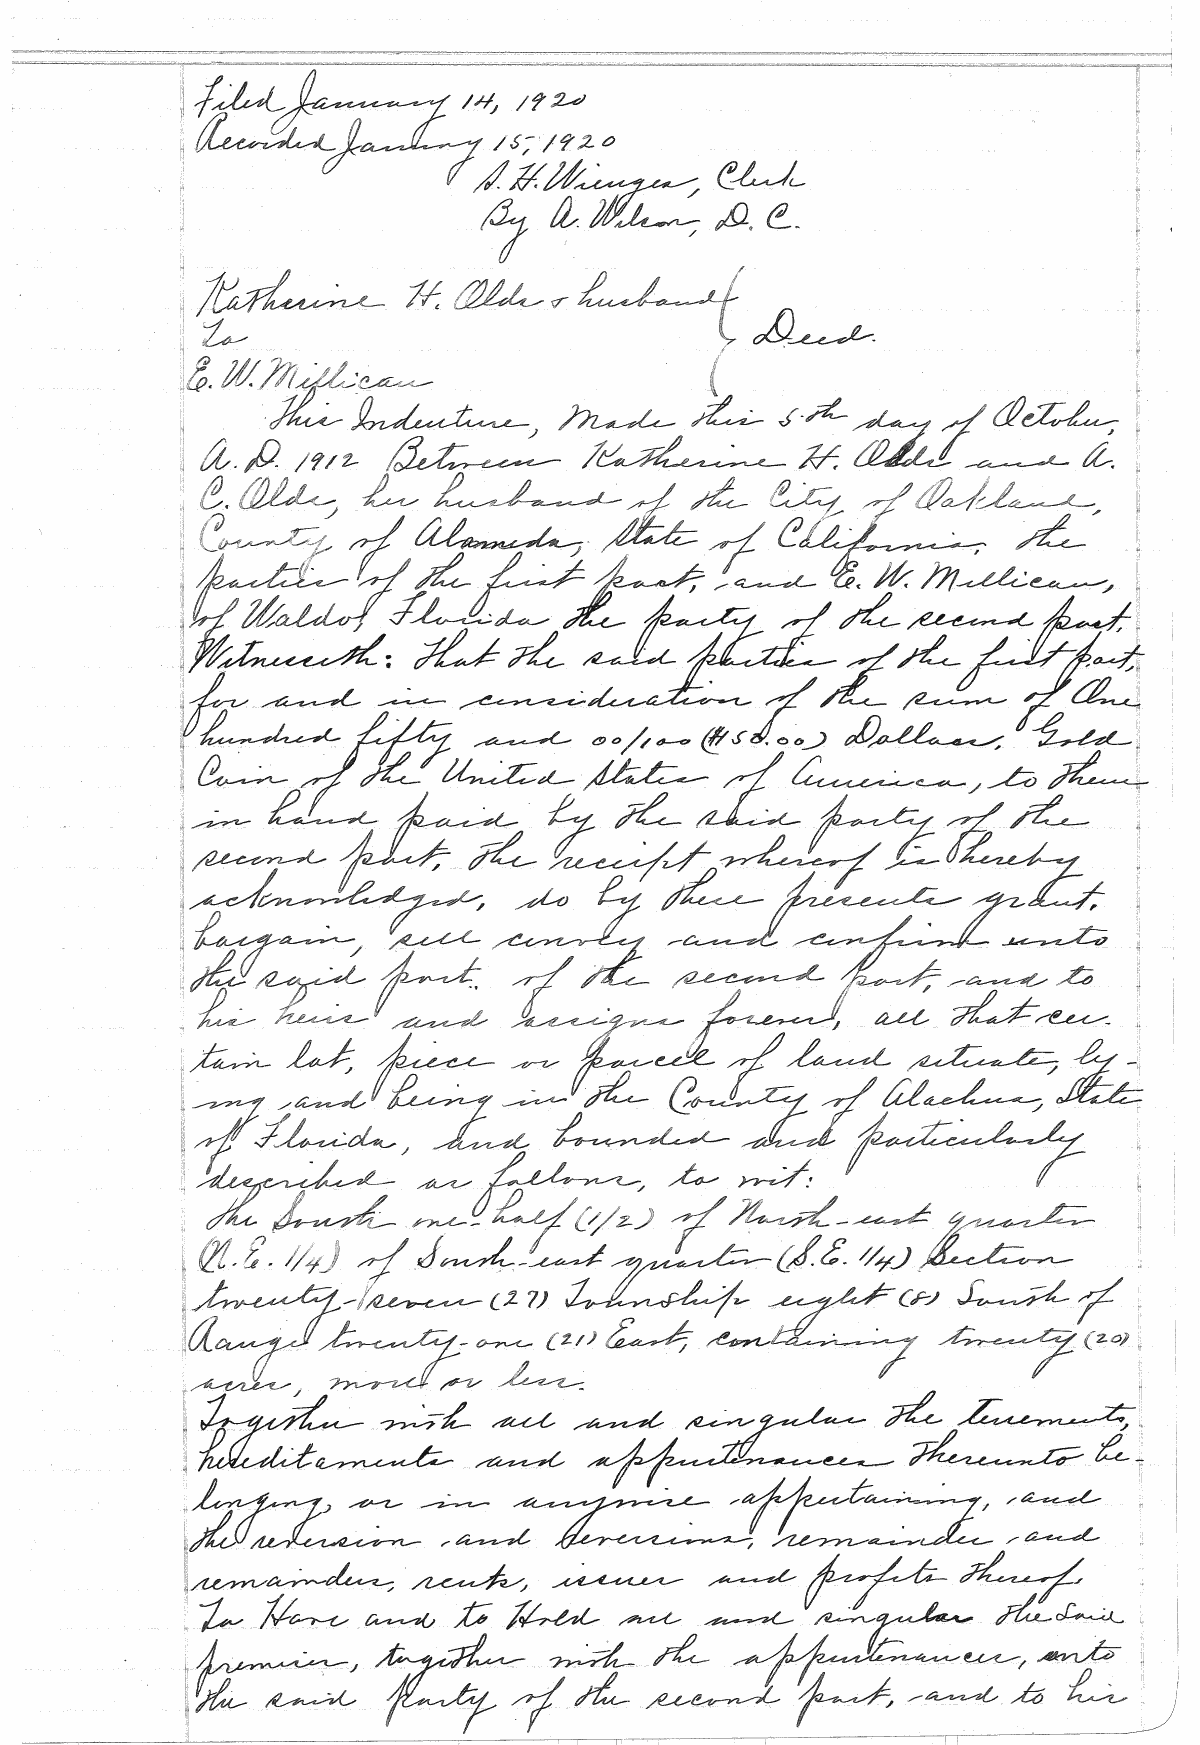 Filed January 14, 1920
Recorded January 15, 1920
S. H. Wienges, Clerk
By A. Wilson, D. C.
Katherine H. Olds & husband
To
Deed.
E. W. Millican
This Indenture, Made this 5th day of October,
A. D. 1912 Between Katherine H. Olds and A.
C. Olds, her husband of the City of Oakland,
County of Alameda, State of California, the
parties of the first part, and E. W. Millican,
of Waldo, Florida the party of the second part.
Witnesseth: That the said parties of the first part,
for and in consideration of the sum of One
hundred fifty and 00/100 ($150.00) Dollars, Gold
Coin of the United States of America, to them
in hand paid by the said party of the
second part, the receipt whereof is hereby
acknowledged, do by these presents grant,
bargain, sell convey and confirm unto
the said part. of the second part, and to
his heirs and assigns forever, all that cer-
tain lot, piece or parcel of land situate, ly-
ing and being in the County of Alachua, State
of Florida, and bounded and particularly
described as follows, to wit:
The South one-half (1/2) of North-east quarter
(N. E. 1/4) of South-east quarter (S. E. 1/4) Section
twenty-seven (27) Township eight (8) South of
Range twenty-one (21) East, containing twenty (20)
acres, more or less.
Together with all and singular the tenements,
hereditaments and appurtenances thereunto be-
longing, or in anywise appertaining, and
the reversion and reversions, remainder and
remainders, rents, issues and profits thereof.
To Have and to Hold all and singular the said
premises, together with the appurtenances, unto
the said party of the second part, and to his